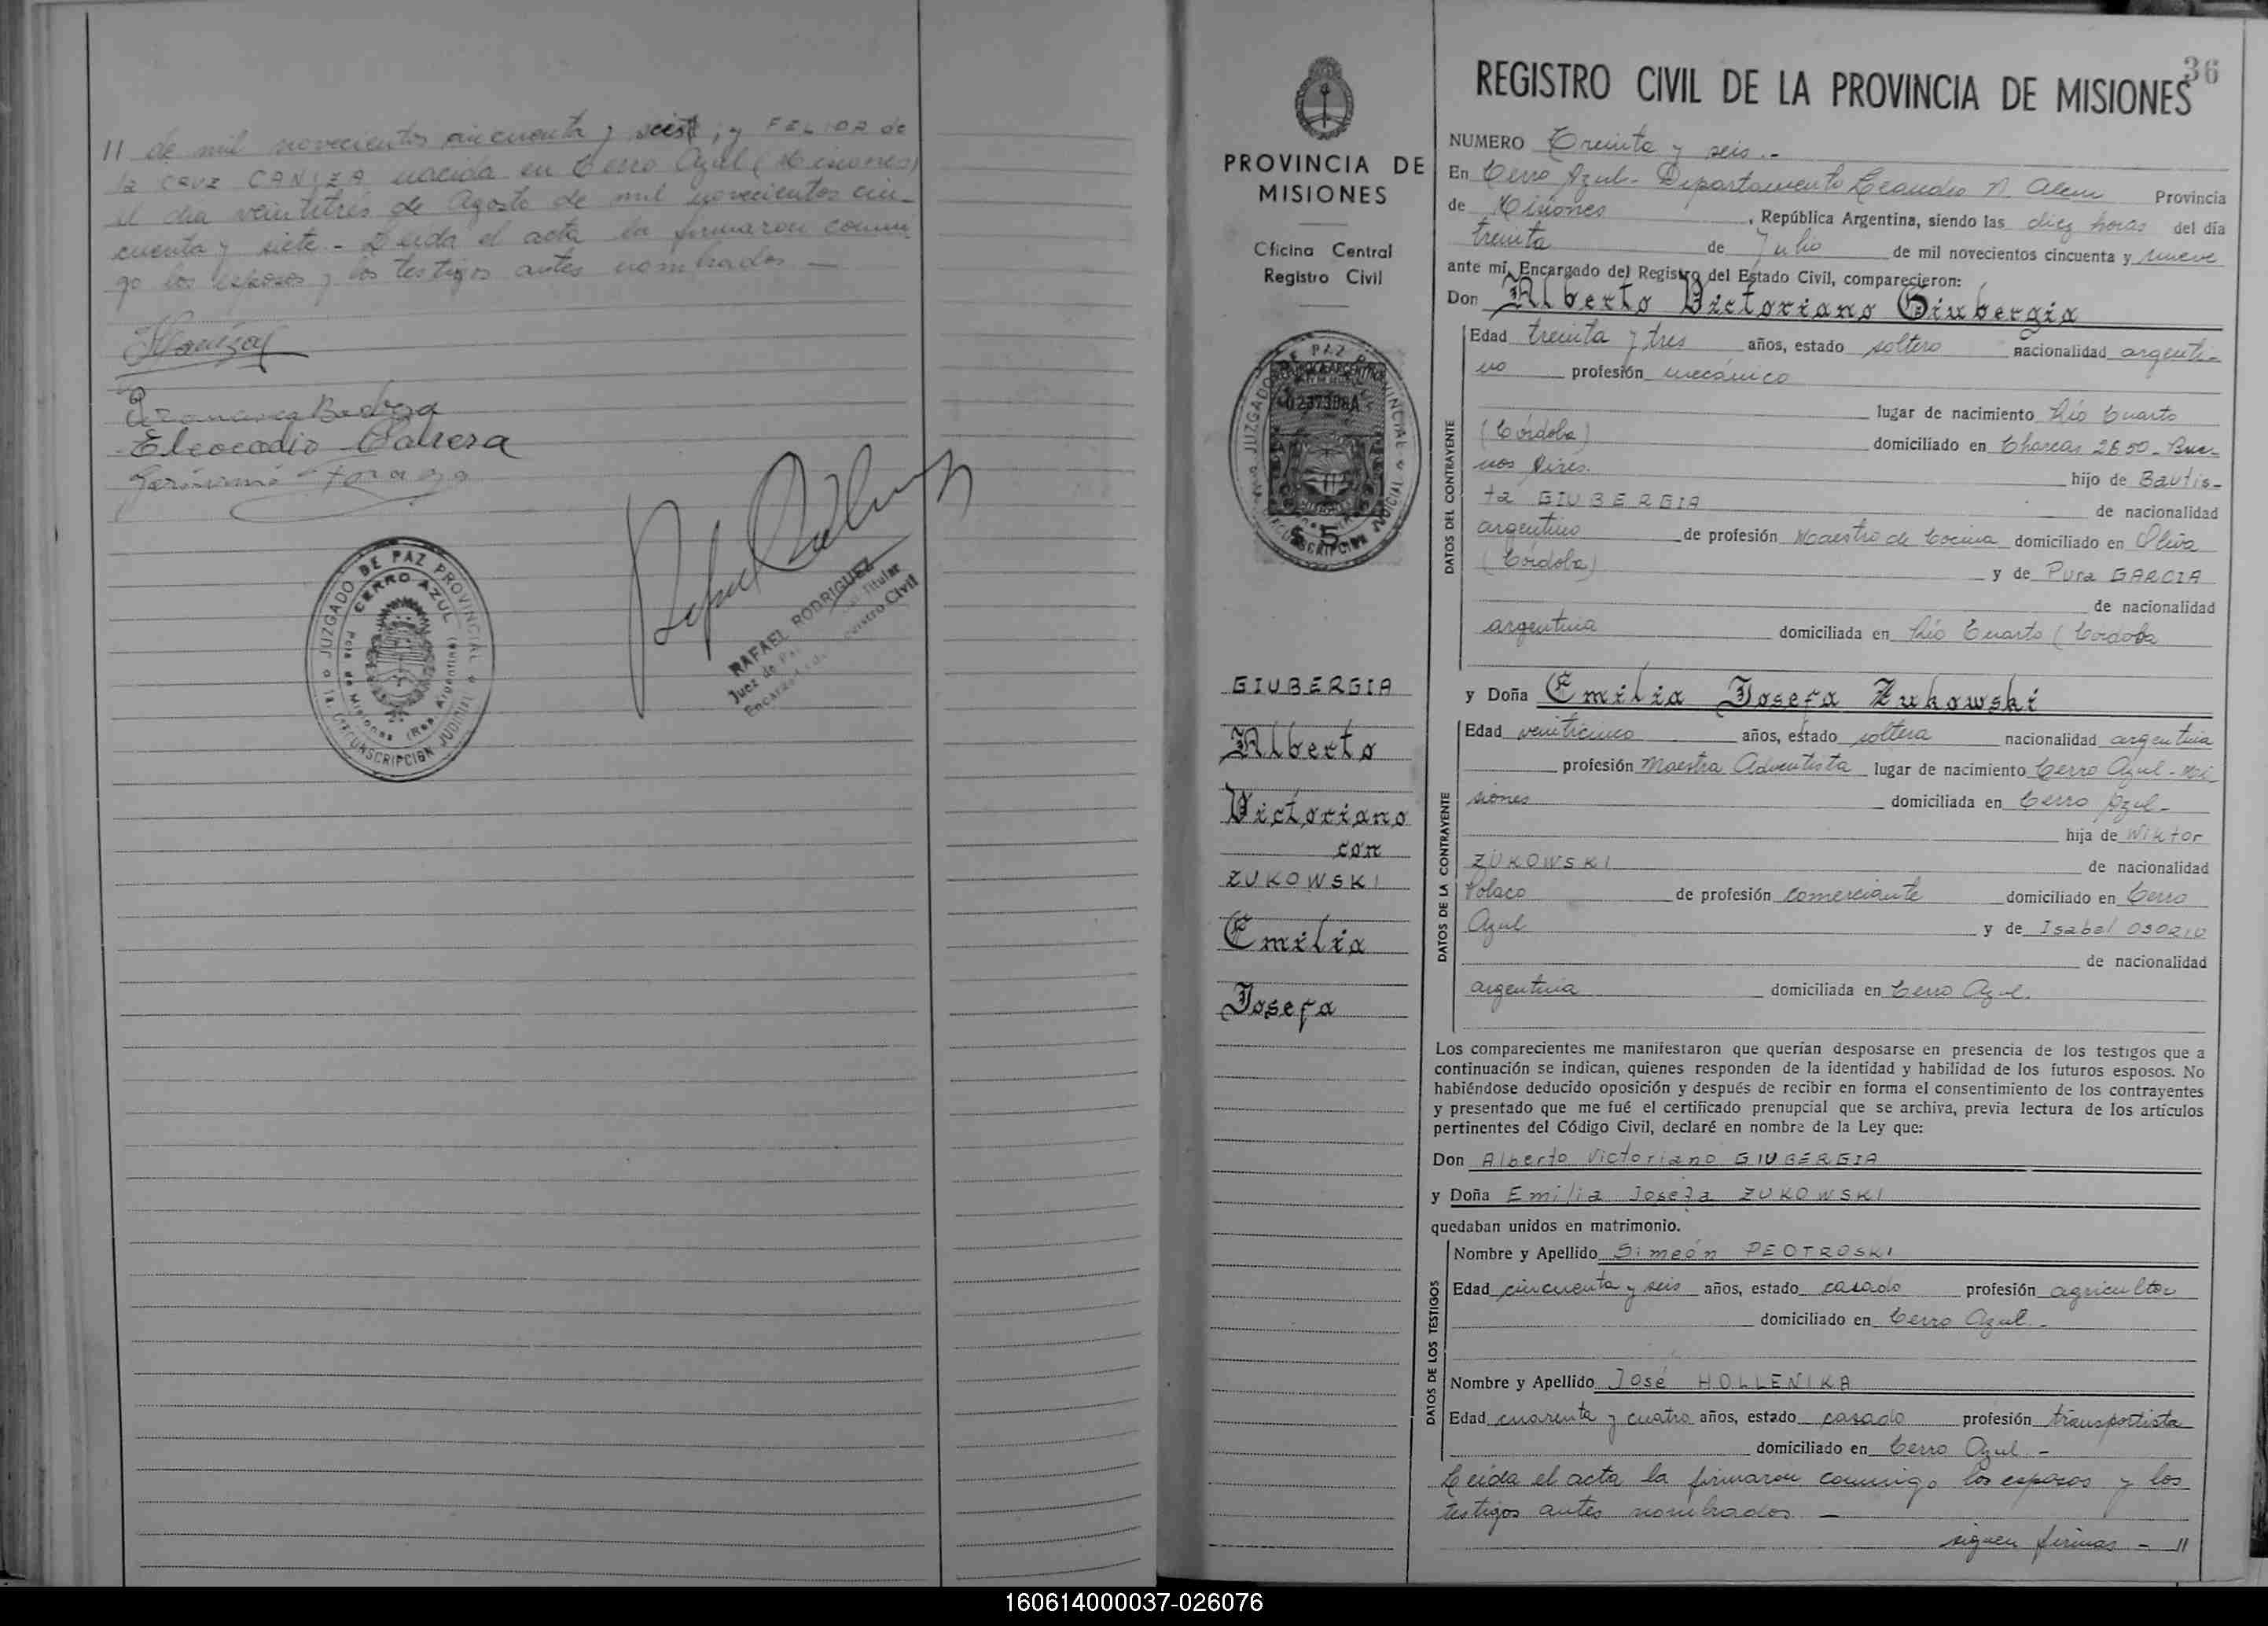 11 de mil novecientos cincuenta y seis; y FELIDA de
la CRUZ CANIZA nacida en Cerro Azul (Misiones)
el dia veintitrés de Agosto de mil novecientos cin-
cuenta y siete - Leida el acta la firmaron conmi
go los esposos y los testigos antes nombrados -
Eleocadio Cabrera
JUZGADO DE PAZ PROVINCIAL
CERRO AZUL
Pcia de Misiones (Rep. Argentina)
1a. CIRCUNSCRIPCION JUDICIAL
RAFAEL RODRIGUEZ
Juez de Paz Titular
Encargado del Registro Civil
PROVINCIA DE
MISIONES
Oficina Central
Registro Civil
JUZGADO DE PAZ PROVINCIAL
0237398A
$ 5
CIRCUNSCRIPCION JUDICIAL
GIUBERGIA
Alberto
Victoriano
con
ZUKOWSKI
Emilia
Josefa
36
REGISTRO CIVIL DE LA PROVINCIA DE MISIONES
NUMERO Treinta y seis.-
En Cerro Azul - Departamento Leandro N. Alem Provincia
de Misiones, República Argentina, siendo las diez horas del día
treinta de Julio de mil novecientos cincuenta y nueve
ante mi, Encargado del Registro del Estado Civil, comparecieron:
Don Alberto Victoriano Giubergia
DATOS DEL CONTRAYENTE
Edad treinta y tres años, estado soltero nacionalidad argenti-
no profesión mecánico
lugar de nacimiento Río Cuarto
(Córdoba) domiciliado en Charcas 2650 - Bue-
nos Aires. hijo de Bautis-
ta GIUBERGIA de nacionalidad
argentino de profesión Maestro de Cocina domiciliado en Oliva
(Córdoba) y de Pura GARCIA
de nacionalidad
argentina domiciliada en Río Cuarto (Córdoba
y Doña Emilia Josefa Zukowski
DATOS DE LA CONTRAYENTE
Edad veinticinco años, estado soltera nacionalidad argentina
profesión Maestra Adventista lugar de nacimiento Cerro Azul - Mi
siones domiciliada en Cerro Azul-
hija de Wiktor
ZUKOWSKI de nacionalidad
Polaco de profesión comerciante domiciliado en Cerro
Azul y de Isabel OSORIO
de nacionalidad
argentina domiciliada en Cerro Azul.
Los comparecientes me manifestaron que querían desposarse en presencia de los testigos que a
continuación se indican, quienes responden de la identidad y habilidad de los futuros esposos. No
habiéndose deducido oposición y después de recibir en forma el consentimiento de los contrayentes
y presentado que me fué el certificado prenupcial que se archiva, previa lectura de los artículos
pertinentes del Código Civil, declaré en nombre de la Ley que:
Don Alberto Victoriano GIUBERGIA
y Doña Emilia Josefa ZUKOWSKI
quedaban unidos en matrimonio.
DATOS DE LOS TESTIGOS
Nombre y Apellido Simeón PEOTROSKI
Edad cincuenta y seis años, estado casado profesión agricultor
domiciliado en Cerro Azul -
Nombre y Apellido José HOLLENIKA
Edad cuarenta y cuatro años, estado casado profesión transportista
domiciliado en Cerro Azul -
Leida el acta la firmaron conmigo los esposos y los
testigos antes nombrados -
siguen firmas - 11
160614000037-026076